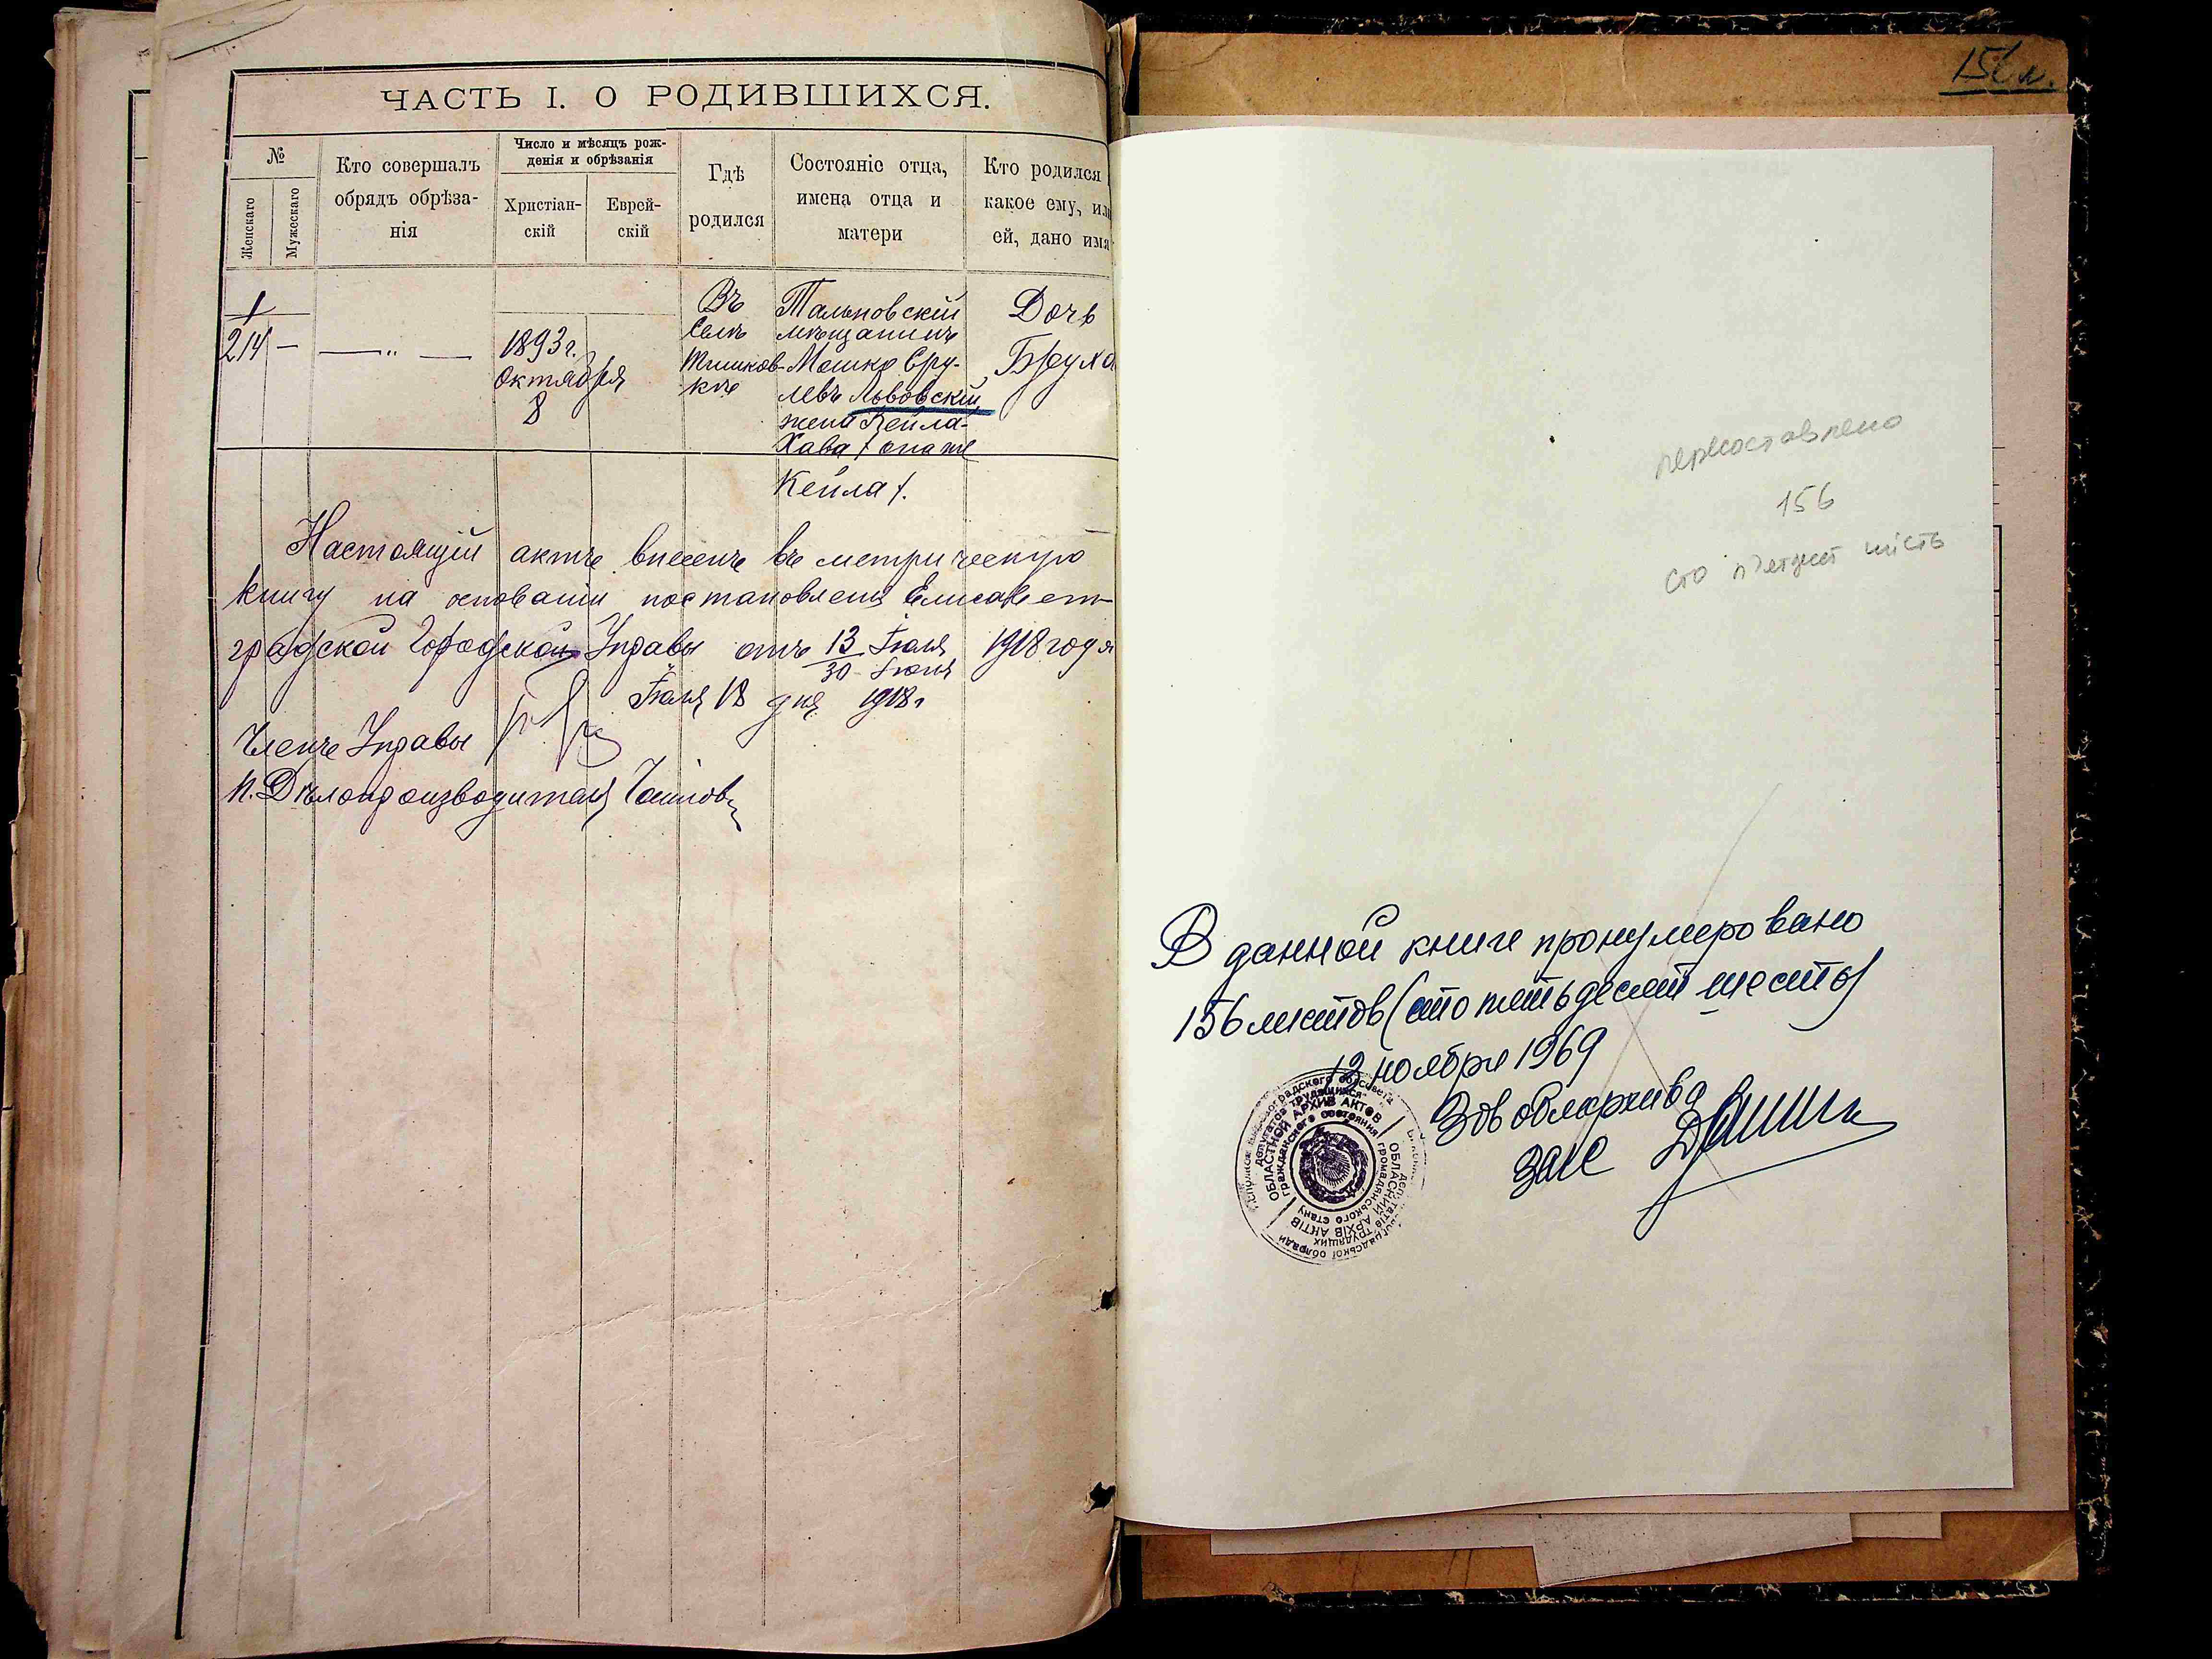 ЧАСТЬ I. О РОДИВШИХСЯ.
№
Женскаго
Мужескаго
Кто совершалъ
обрядъ обрѣза-
нія
Число и мѣсяцъ рож-
денія и обрѣзанія
Христіан-
скій
Еврей-
скій
Гдѣ
родился
Состояніе отца,
имена отца и
матери
Кто родился
какое ему, или
ей, дано имя
1
214 —
— „ —
1893 г.
Октября
8
Въ
Селѣ
Тишков-
кѣ
Тальновскій
мѣщанинъ
Мошко Сру-
левъ Львовскій,
жена Кейла-
Хава / она же
Кейла /.
Дочь
Бруха
Настоящій актъ внесенъ въ метрическую
книгу на основаніи постановленія Елисавет-
градской Городской Управы отъ 13 Іюля 1918 года
30 Іюня
Іюля 18 дня 1918 г
Членъ Управы
И. Дѣлопроизводителя
156 л.
пересоставлено
156
сто п'ятдесят шість
В данной книге пронумеровано
156 листов (сто пятьдесят шесть)
13 ноября 1969
Зав облархива
загс
депутатов трудящихся
ОБЛАСТНОЙ АРХИВ АКТОВ
гражданского состояния
ОБЛАСНИЙ АРХІВ АКТІВ
громадянського стану